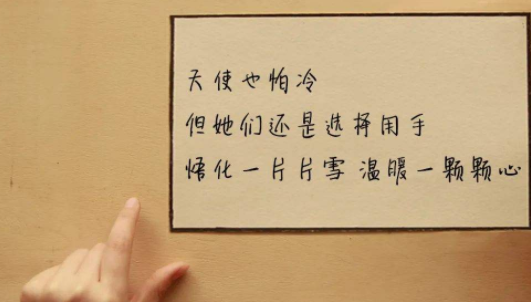 天使也怕冷
但她们还是选择用手
悟化一片片雪 温暖一颗颗心